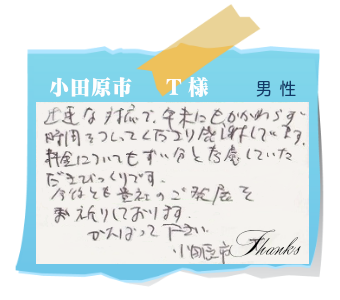 小田原市 T様 男性
迅速な対応で、年末にもかかわらず
時間をつくってくださり感謝しています。
料金についてもずい分と考慮していた
だきびっくりです。
今後とも貴社のご発展を
お祈りしております。
がんばって下さい。
小田原市
Thanks